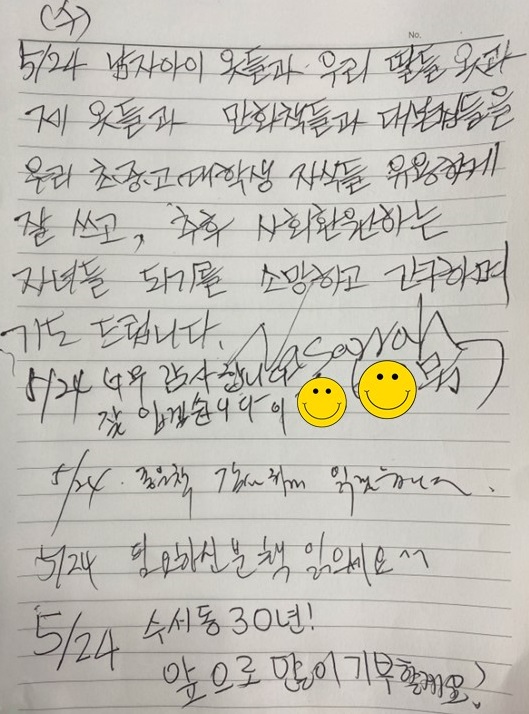 (수)
No.
5/24 남자아이 옷들과 우리 딸들 옷과
제 옷들과 만화책들과 대본집들을
우리 초중고대학생 자식들 유용하게
잘 쓰고, 추후 사회환원하는
자녀들 되기를 소망하고 간구하며
기도 드립니다.
5/24 너무 감사합니다
잘 입겠습니다 이
5/24. 좋은책 감사히 읽겠습니다.
5/24 필요하신 분 책 읽으세요^^
5/24 수서동 30년!
앞으로 많이 기부할게요?